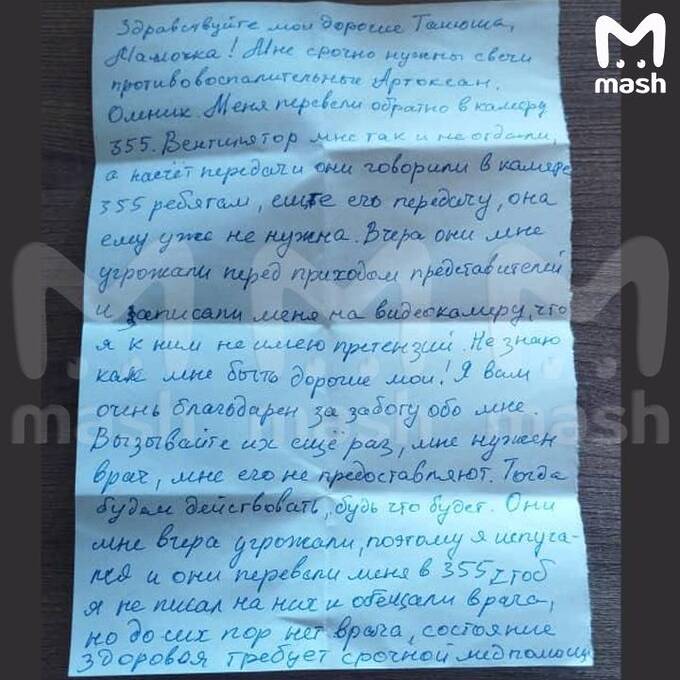 mash
Здравствуйте мои дорогие Танюша,
Мамочка! Мне срочно нужны свечи
противовоспалительные Артоксан.
Омник. Меня перевели обратно в камеру
355. Вентилятор мне так и не отдали,
а насчёт передачи они говорили в камере
355 ребятам, ешьте его передачу, она
ему уже не нужна. Вчера они мне
угрожали перед приходом представителей
и записали меня на видеокамеру, что
я к ним не имею претензий. Не знаю
как мне быть дорогие мои! Я вам
очень благодарен за заботу обо мне.
Вызывайте их ещё раз, мне нужен
врач, мне его не предоставляют. Тогда
будем действовать, будь что будет. Они
мне вчера угрожали, поэтому я испуга-
лся и они перевели меня в 355 чтоб
я не писал на них и обещали врача,
но до сих пор нет врача, состояние
здоровая требует срочной медпомощи
mash
mash
mash